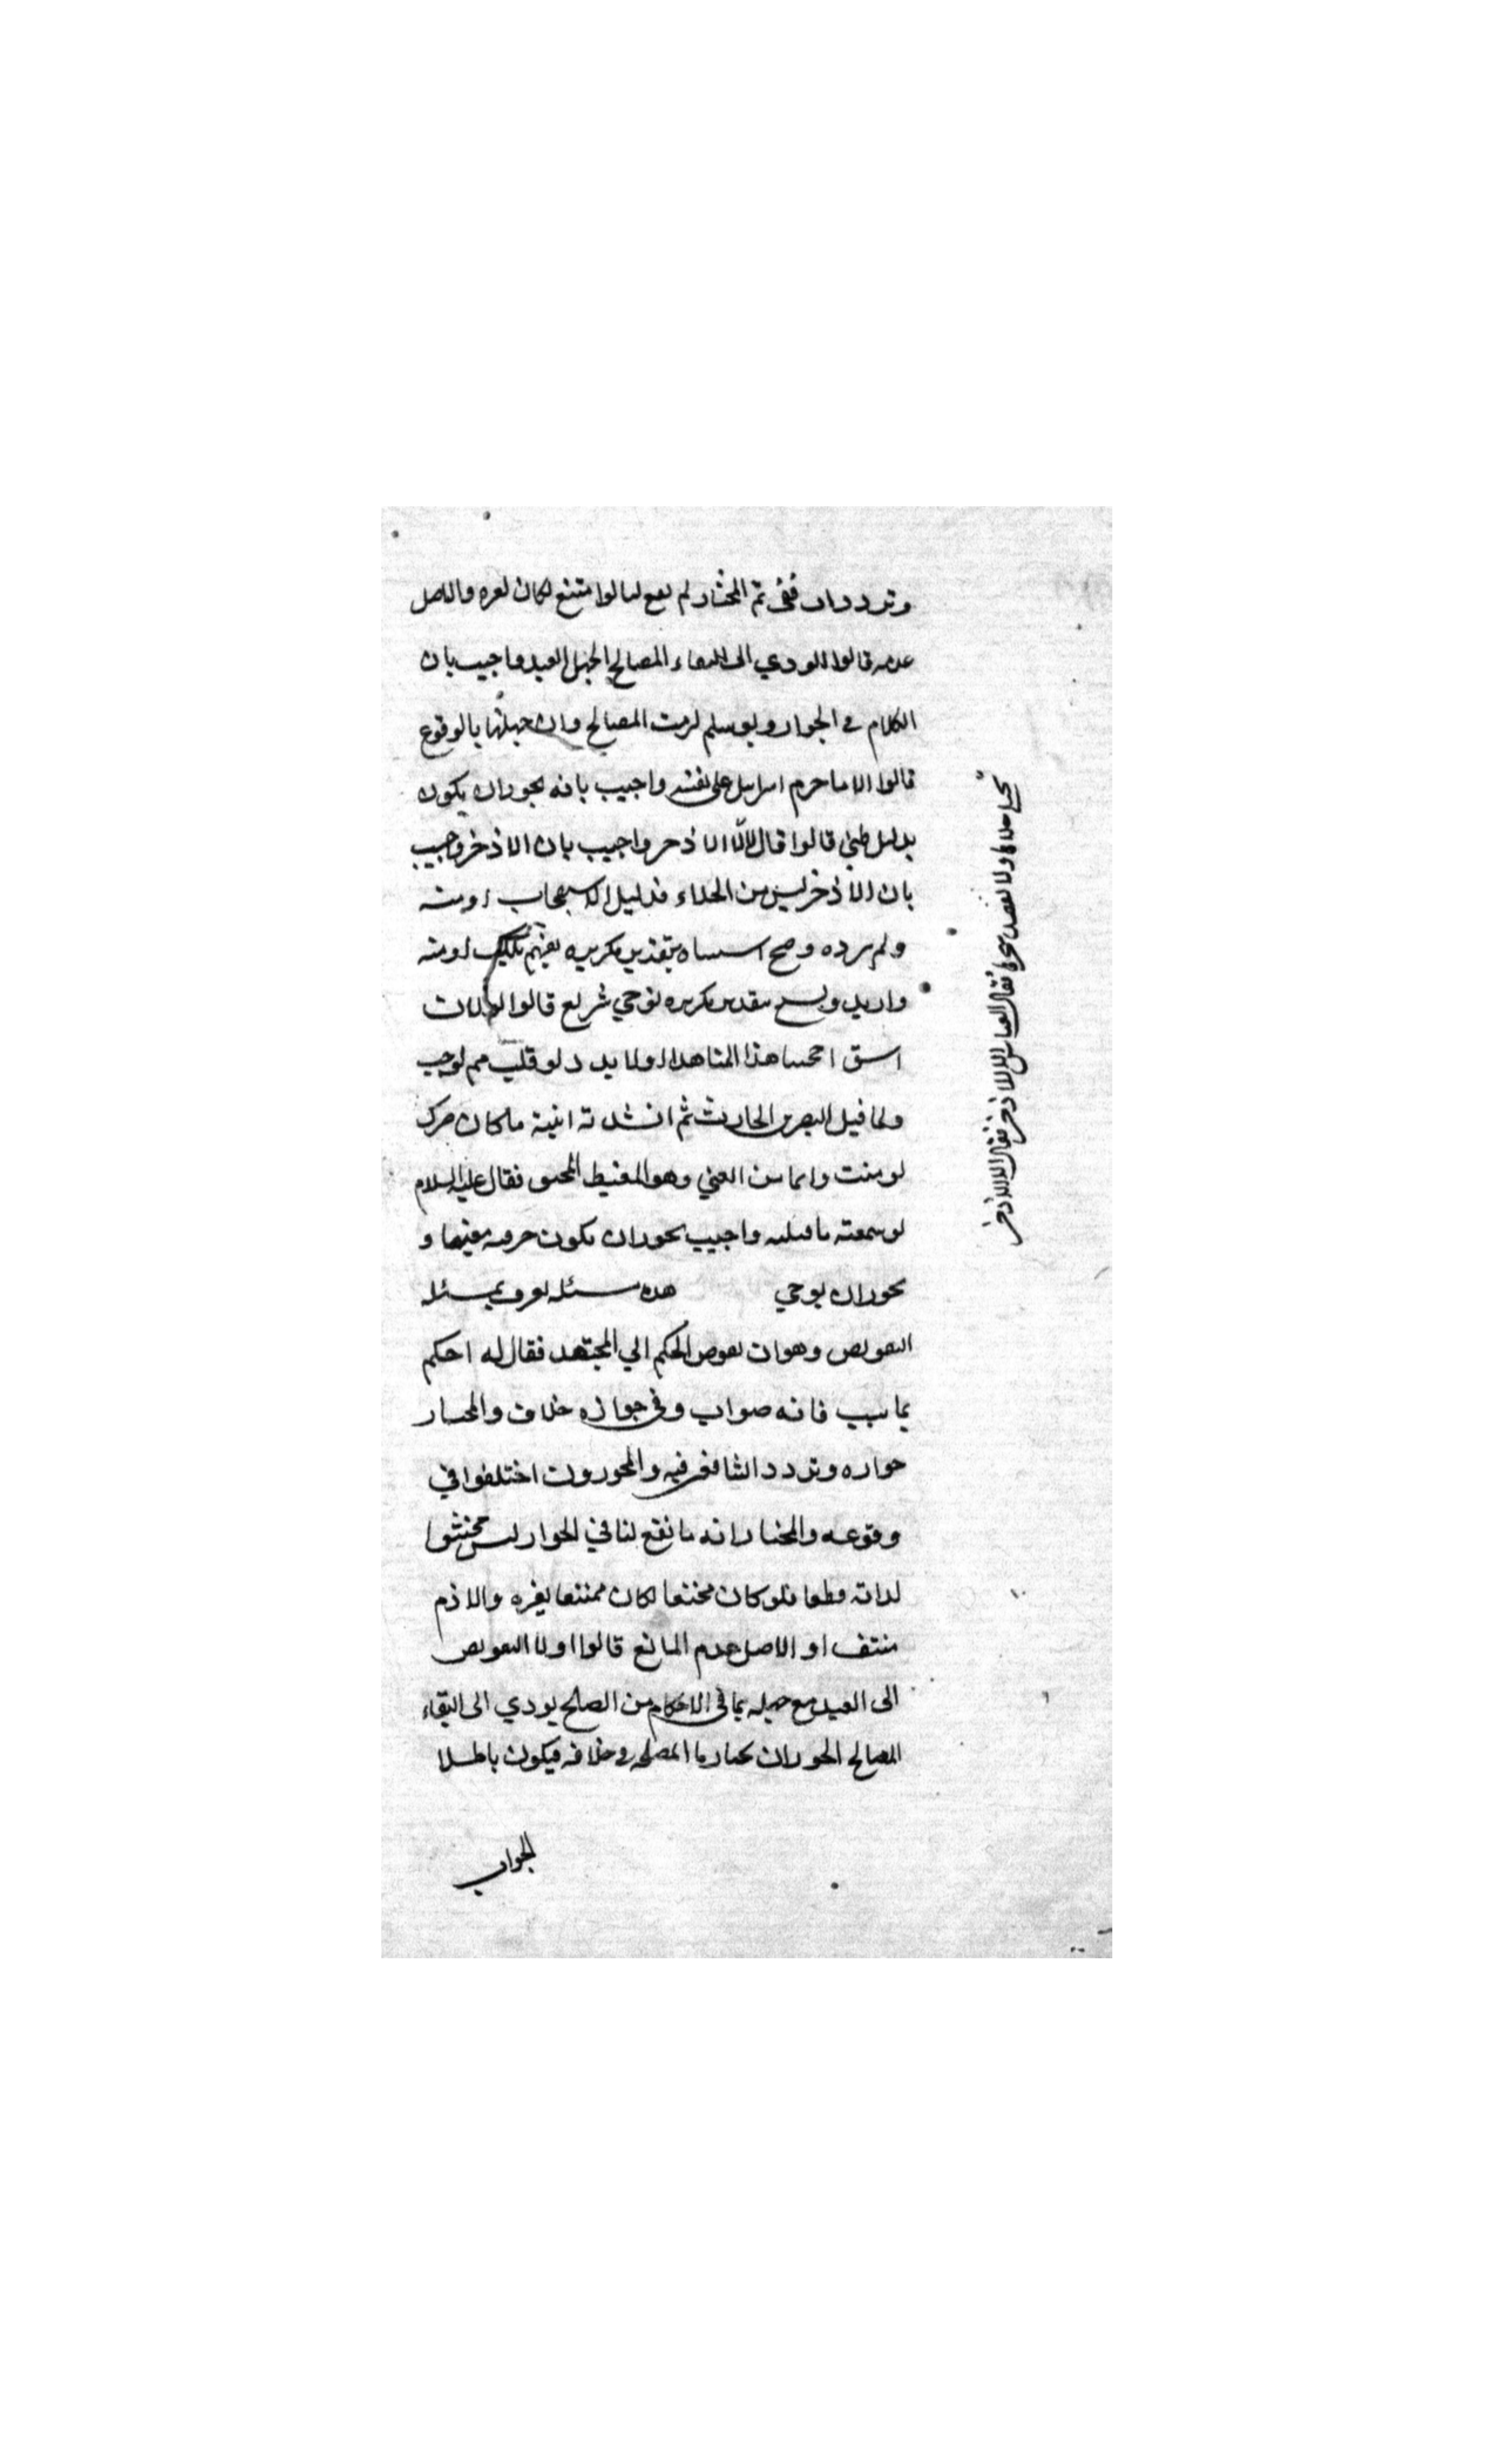 وتردد ففي ثم المختار لم يقع لنا لو امتنع لكان لغيره والاصل
عدمه قالوا يودي الى انتفاء المصالح لجهل العبد واجيب بان
الكلام في الجواز ولو سلم لزمت المصالح وان جهلتها بالوقوع
قالوا الا ما حرم اسراييل على نفسه واجيب بانه يجوز ان يكون
بدليل ظني قالوا قال الا الاذخر واجيب بان الاذخر واجيب
بان الاذخر ليس من الخلاء فدليل الاستصحاب او منه
ولم يرده وصح استثناه بتقدير تكريره لفهم ذلك او منه
واريد ونسخ بتقدير تكريره بوحي سريع قالوا لولا ان
اشق احجنا هذا العامنا ام للابد ولو قلت نعم لوجب
ولما قتل النضر بن الحارث ثم انشدته ابنته ما كان ضرك
لو مننت وربما من الفتي وهو المغيظ المحنق فقال عليه السلام
لو سمعته ما قتلته واجيب يجوز ان يكون خير فيه معينا و
يجوز ان بوحي هذه مسئلة تعرف بمسئلة
التفويض وهو ان يفوض الحكم الي المجتهد فقال له احكم
بما شيت فانه صواب وفي جوازه خلاف والمختار
جوازه وتردد الشافعي فيه والمجوزون اختلفوا في
وقوعه والمختار انه ما نقع لنا في الجواز ليس ممتنعا
لذاته قطعا فلو كان ممتنعا لكان ممتنعا بغيره والاذم
منتف او الاصل عدم المانع قالوا اولا التفويض
الى العبد مع جهله بما في الاحكام من الصالح يودي الى انتفاء
المصالح لجواز ان يختار ما المصلحه في خلافه فيكون باطلا
الجواب
خلاها ولا يعضد شجرها فقال العباس الا الاذخر فقال الا الاذخر